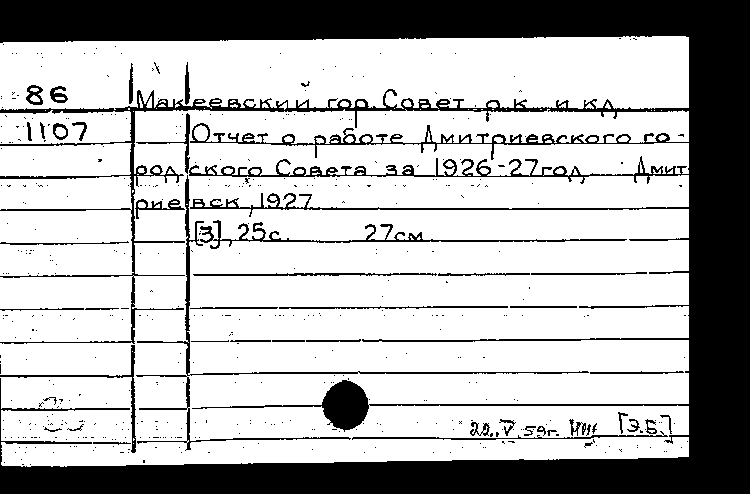 86 Макеевский гор. Совет р.к. и кд
1107 Отчет о работе Дмитриевского го-
родского Совета за 1926-27год Дмит
риевск, 1927
[3], 25с. 27см
22.V.59г. [Э.Б.]